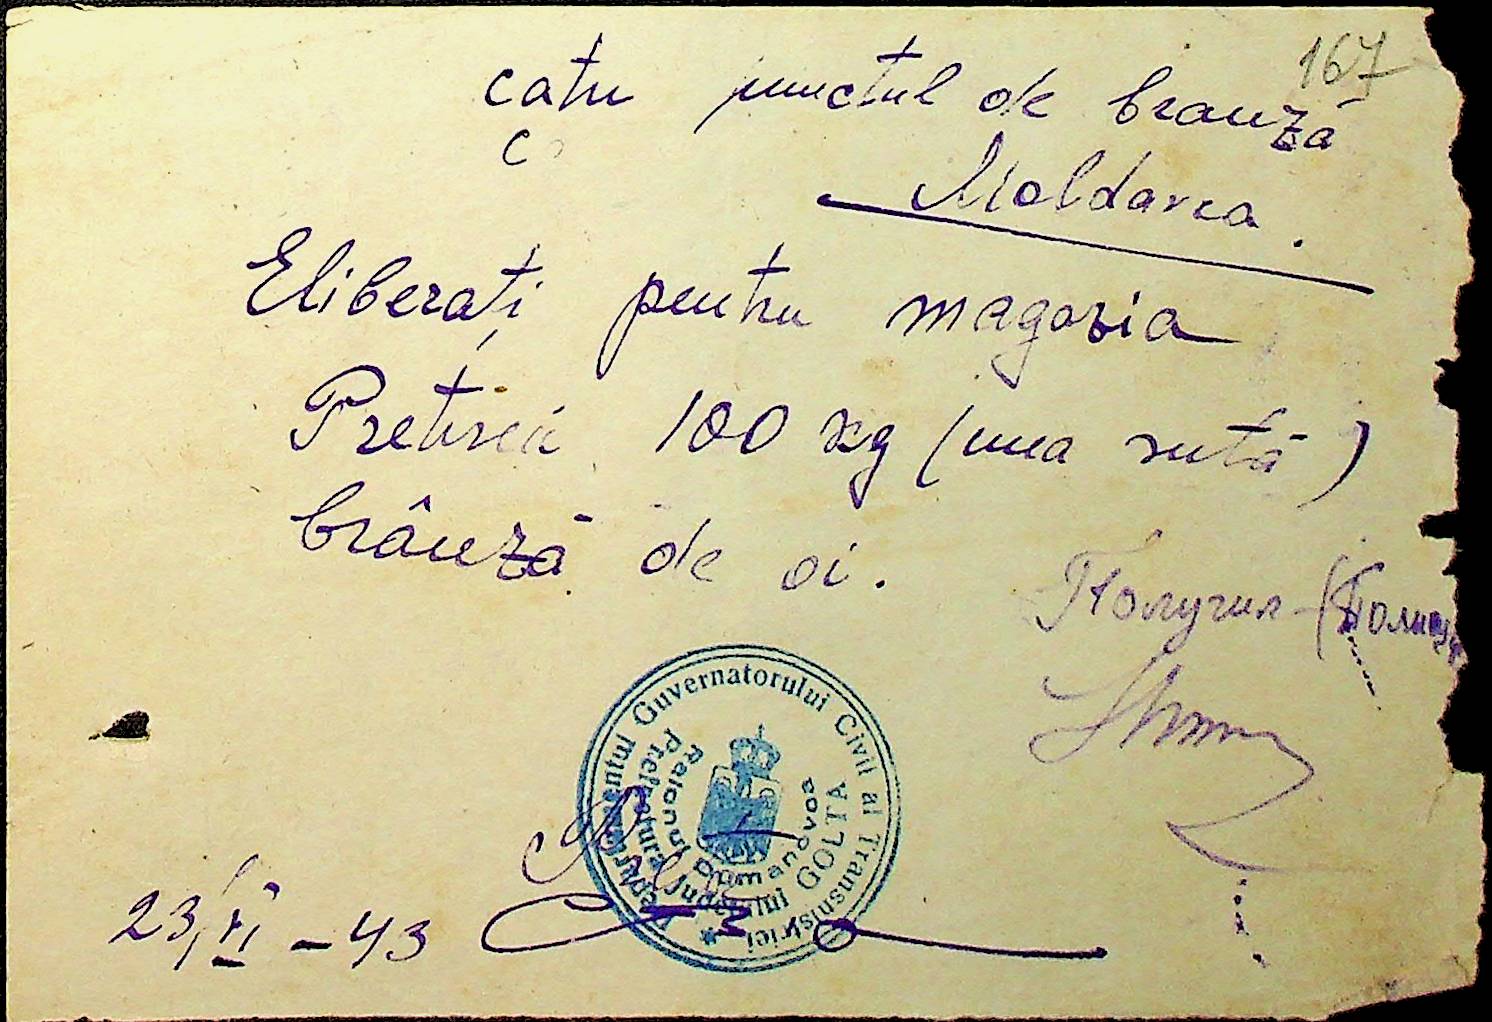 167
catre punctul de branză
C
Moldavca.
Eliberați pentru magazia
Preturei 100 kg (una sută)
brânză de oi.
Получил - (
Departamentul Guvernatorului Civil al Transnistriei
Prefectura Județului GOLTA
Raionul Dumanovca
23/VI - 43